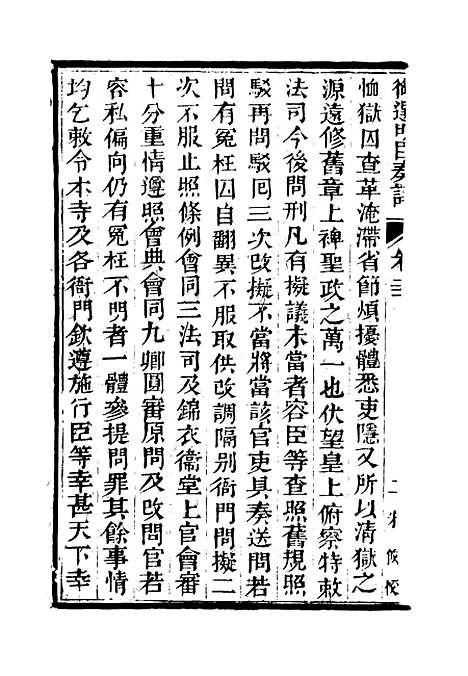 御選明臣奏議 卷三
恤獄囚查革淹滯省節煩擾體悉吏隱又所以清獄之
源遠修舊章上裨聖政之萬一也伏望皇上俯察特敕
法司今後問刑凡有擬議未當者容臣等查照舊規照
駁再問駁囘三次改擬不當將當該官吏具奏送問若
問有冤枉囚自翻異不服取供改調隔别衙門問擬二
次不服止照條例會同三法司及錦衣衞堂上官會審
十分重情遵照會典會同九卿圓審原問及改問官若
容私偏向仍有冤枉不明者一體參提問罪其餘事情
均乞敕令本寺及各衙門欽遵施行臣等幸甚天下幸